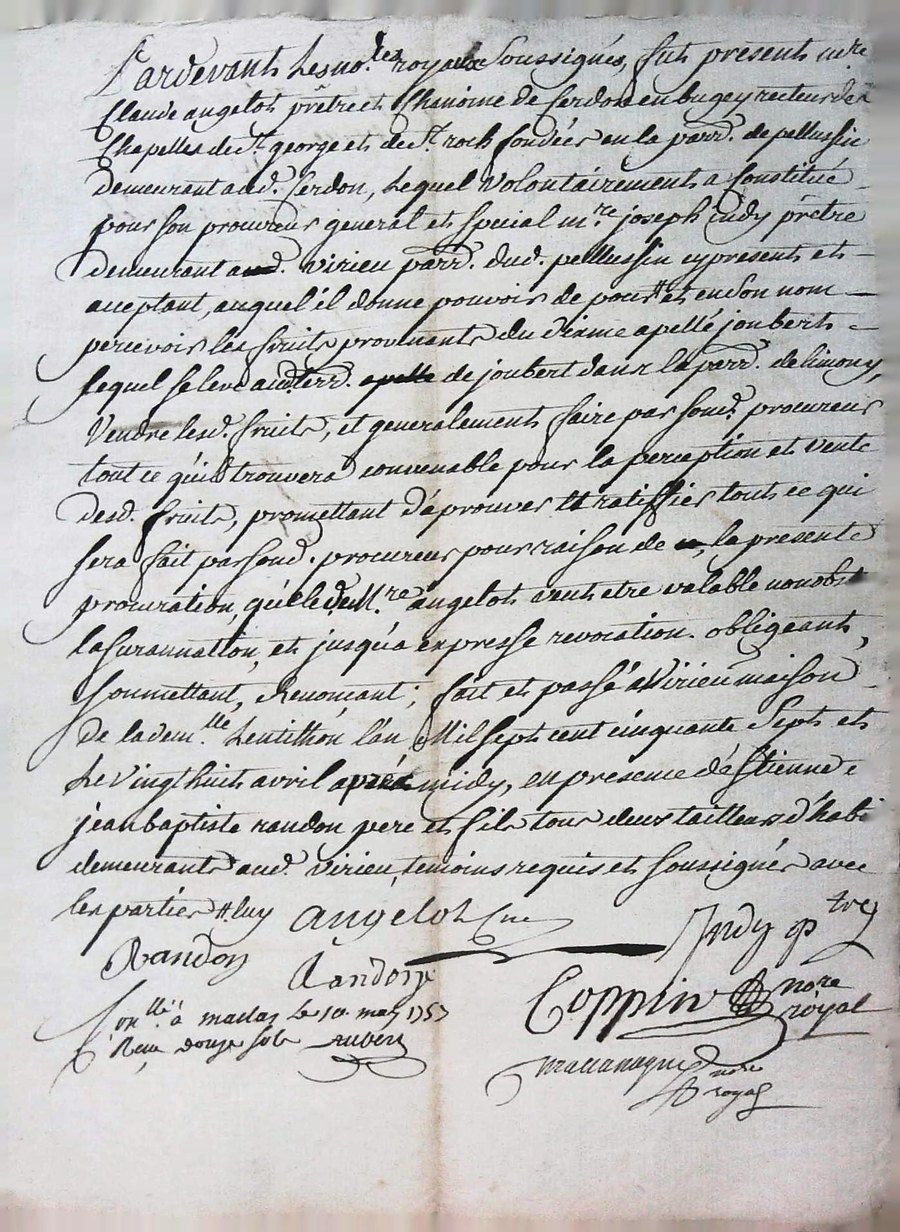 Pardevant les no.res royaux soussignés, fut present m.re
Claude angelot prêtre et Chanoine de Cerdon en bugey recteur des
Chapelles de s.t george et de s.t roch fondées en la parr.e de pellussin
demeurant aud. Cerdon, lequel volontairement a Constitué
pour son procureur general et special m.re joseph Indy prêtre
demeurant aud. virieu parr.e dud. pellussin cy present et
acceptant, auquel il donne pouvoir de pour # et en son nom
percevoir les fruits provenants du dixme apellé joubert
lequel se leve au terr.e de joubert dans la parr.e de limony,
Vendre lesd. fruits, et generalement faire par sond. procureur
tout ce qu'il trouvera convenable pour la perception et vente
desd. fruits, promettant d'áprouver et ratiffier tout ce qui
sera fait par sond. procureur pour raison de la presente
procuration, quéled. M.re angelot veut etre valable nonobst
la surannation, et jusqu'a expresse revocation. obligeant,
soumettant, Renoncant; fait et passé a Virieu maison
de la dem.lle Lentillon l'an Mil sept cent cinquante Sept et
le vingt huit avril aprés midy, en presence d'Etienne e
jean baptiste randon pere et fils tous deux tailleurs d'habi
demeurants aud. virieu, temoins requis et soussignés avec
les parties # luy
angelot Cne
Indy ptre
Randon
Randon
Coppin nore royal
Con.llé a maclas le 10 may 1757
Reçu douze sols
nore royal